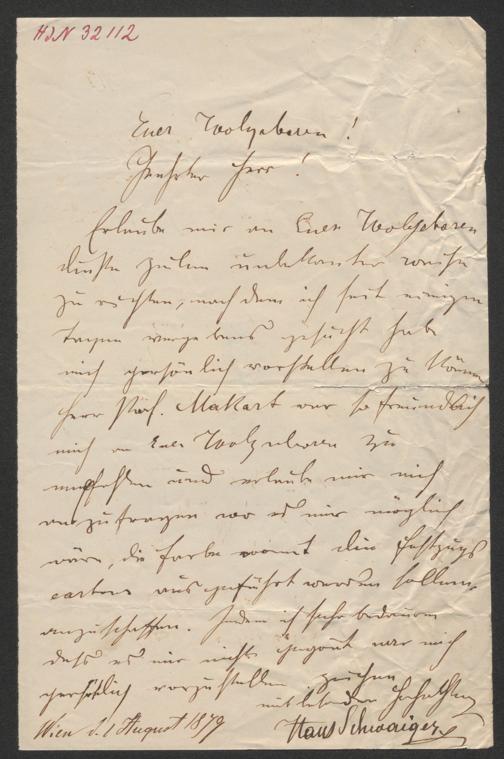 HJN 32112
Euer Wolgeboren!
Geehrter Herr!
Erlaube mir an Euer Wolgeboren
diese Zeilen unbekanter weise
zu richten, nach dem ich seit einigen
Tagen vergebens gesucht habe
mich persönlich vorstellen zu können
Herr Prof. Makart war so freundlich
mich an Euer Wolgeboren zu
empfehlen und erlaube mir mich
anzufragen wo es mir möglich
wäre, die Farbe womit die Festzugs
cartons ausgeführt werden sollen,
anzuschaffen. Indem ich sehr bedaure
dass es mir nicht gegönt war mich
persönlich vorzustellen zeichne
mit Hochachtung
Wien d. 1 August 1879
Hans Schwaiger